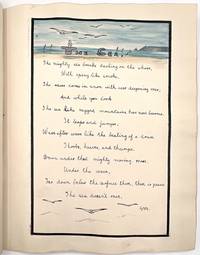 The Sea.
The mighty sea breaks dashing on the shore,
With spray like smoke.
The wave comes in now with ever deepening roar,
And while you look
The sea like rugged mountains has now become.
It leaps and jumps.
Wave after wave like the beating of a drum
Throbs, heaves, and thumps.
Down under that mighty moving mass
Under the wave,
Far down below the surface there, there is peace
The sea doesn't rave.